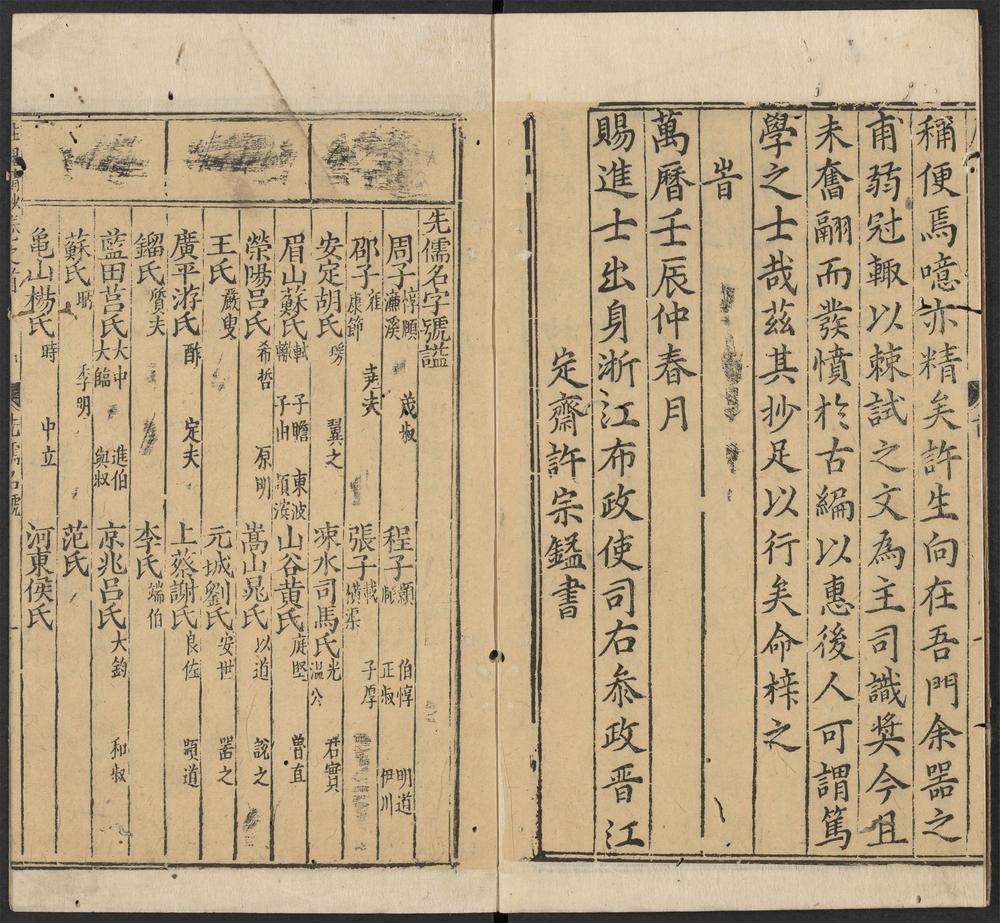 稱便焉噫亦精矣許生向在吾門余器之
甫弱冠輙以棘試之文為主司識奬今且
未奮翮而發憤於古編以惠後人可謂篤
學之士哉茲其抄足以行矣命梓之
旹
萬曆壬辰仲春月
賜進士出身浙江布政使司右叅政晋江
定齋許宗鎰書
先儒名字號謚
周子 惇頤 濂溪 茂叔 程子 顥 頤 伯惇 正叔 明道 伊川
邵子 雍 康節 堯夫 張子 載 橫渠 子厚
安定胡氏 瑗 翼之 涑水司馬氏 光 温公 君實
眉山蘇氏 軾 轍 子瞻 子由 東坡 潁濱 山谷黄氏 庭堅 魯直
榮陽呂氏 希哲 原明 嵩山晁氏 以道 說之
王氏 嚴叟 元城劉氏 安世 器之
廣平游氏 酢 定夫 上蔡謝氏 良佐 顯道
鎦氏 質夫 李氏 端伯
藍田呂氏 大中 大臨 進伯 與叔 京兆呂氏 大鈞 和叔
蘇氏 昞 季明 范氏
亀山楊氏 時 中立 河東侯氏
先儒名號